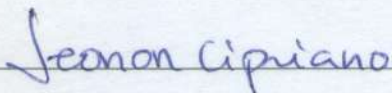 Leonon Cipriano